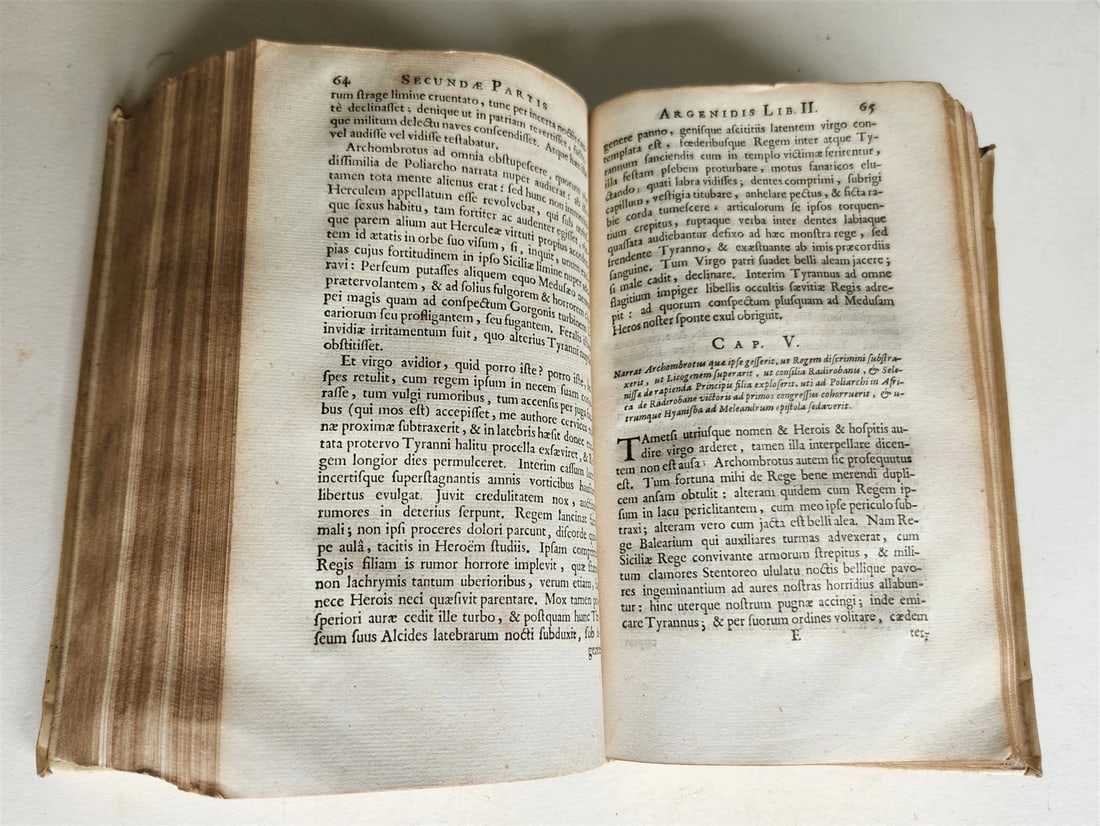 64 SECUNDÆ PARTIS
rum ſtrage limine cruentato, tunc per incerta noctis
tè declinaſſet; denique ut in patriam reverſiſſet,
que militum delectu naves conſcendiſſet. Atque hæc
vel audiſſe vel vidiſſe teſtabatur.
Archombrotus ad omnia obſtupeſcere, quorum
diſſimilia de Poliarcho narrata nuper audierat: ab
tamen tota mente alienus erat: ſed hunc non immerito
Herculem appellatum eſſe revolvebat, qui ſub
que ſexus habitu, tam fortiter ac audenter egiſſet,
que parem alium aut Herculeæ virtuti propius
tem id ætatis in orbe ſuo viſum, ſi, inquit, unum
pias cujus fortitudinem in ipſo Siciliæ limine nuper
ravi: Perſeum putaſſes aliquem equo Meduſæo
prætervolantem, & ad ſolius fulgorem & horrorem
pei magis quam ad conſpectum Gorgonis turbinem
cariorum ſeu profligantem, ſeu fugantem. Feralis
invidiæ irritamentum fuit, quo alterius Tyranni
obſtitiſſet.
Et virgo avidior, quid porro iſte? porro iſte,
ſpes retulit, cum regem ipſum in necem ſuam
raſſe, tum vulgi rumoribus, tum accenſis per juga
bus (qui mos eſt) accepiſſet, me authore cervices
næ proximæ ſubtraxerit, & in latebris hæſit donec
tata protervo Tyranni halitu procella exſæviret, &
gem longior dies permulceret. Interim caſſum
incertiſque ſuperſtagnantis amnis vorticibus
libertus evulgat. Juvit credulitatem nox,
rumores in deterius ſerpunt. Regem lancinat
mali; non ipſi proceres dolori parcunt, diſcorde
pe aulâ, tacitis in Heroëm ſtudiis. Ipſam
Regis filiam is rumor horrore implevit, quæ
non lachrymis tantum uberioribus, verum etiam,
nece Herois neci quæſivit parentare. Mox tamen
ſperiori auræ cedit ille turbo, & poſtquam hunc
ſcum ſuus Alcides latebrarum nocti ſubduxit, ſub
ARGENIDIS LIB. II. 65
genere panno, geniſque aſcititiis latentem virgo con-
templata eſt, fœderibuſque Regem inter atque Ty-
rannum ſanciendis cum in templo victimæ ferirentur,
illa feſtam plebem proturbare, motus fanaticos elu-
ctando, quati labra vidiſſes; dentes comprimi, ſubrigi
capillum, veſtigia titubare, anhelare pectus, & ficta ra-
bie corda tumeſcere: articulorum ſe ipſos torquen-
tium crepitus, ruptaque verba inter dentes labiaque
quaſſata audiebantur defixo ad hæc monſtra rege, ſed
frendente Tyranno, & exæſtuante ab imis præcordiis
ſanguine. Tum Virgo patri ſuadet belli aleam jacere;
ſi male cadit, declinare. Interim Tyrannus ad omne
flagitium impiger libellis occultis ſævitiæ Regis adre-
pit: ad quorum conſpectum pluſquam ad Meduſam
Heros noſter ſponte exul obriguit.
CAP. V.
Narrat Archombrotus quæ ipſe geſſerit, ut Regem diſcrimini ſubſtra-
xerit, ut Licogenem ſuperarit, ut conſilia Radirobanis, & Sele-
niſſæ de rapienda Principis filia exploſerit, uti ad Poliarchi in Afri-
ca de Radirobane victoris ad primos congreſſus cohorruerit, & u-
trumque Hyaniſba ad Meleandrum epiſtola ſedaverit.
TAmetſi utriuſque nomen & Herois & hoſpitis au-
dire virgo arderet, tamen illa interpellare dicen-
tem non eſt auſa: Archombrotus autem ſic proſequutus
eſt. Tum fortuna mihi de Rege bene merendi dupli-
cem anſam obtulit: alteram quidem cum Regem ip-
ſum in lacu periclitantem, cum meo ipſe periculo ſub-
traxi; alteram vero cum jacta eſt belli alea. Nam Re-
ge Balearium qui auxiliares turmas advexerat, cum
Siciliæ Rege convivante armorum ſtrepitus, & mili-
tum clamores Stentoreo ululatu noctis bellique pavo-
res ingeminantium ad aures noſtras horridius allabun-
tur: hinc uterque noſtrum pugnæ accingi; inde emi-
care Tyrannus; & per ſuorum ordines volitare, cædem
E ter-